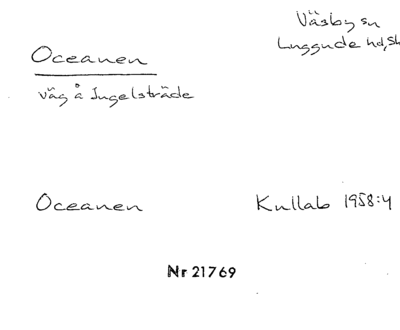 Väsby sn
Luggude hd, Sk
Oceanen
väg å Ingelsträde
Oceanen Kullab 1958:4
Nr 21769